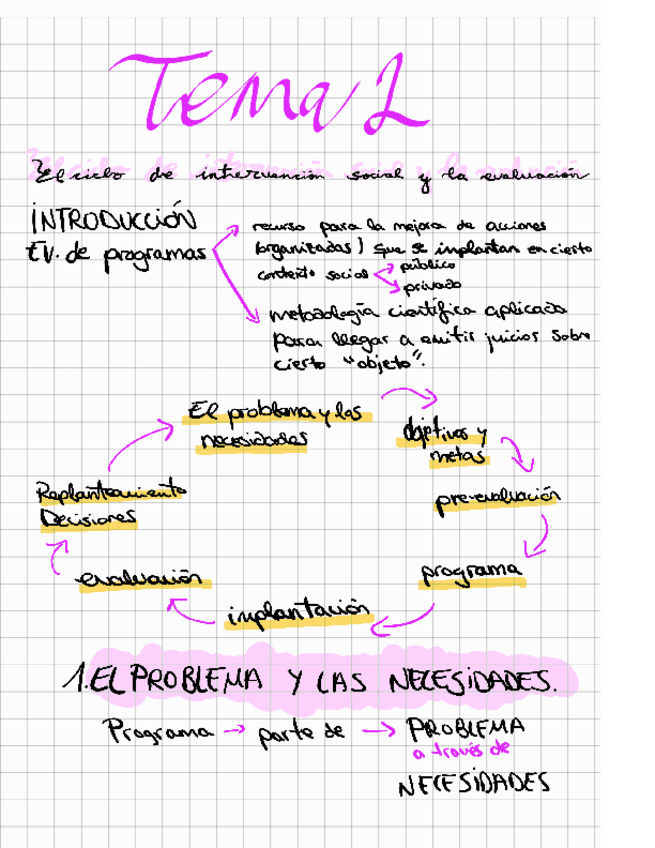 Tema 2
El ciclo de intervención social y la evaluación
INTRODUCCIÓN
EV. de programas
recurso para la mejora de acciones
(organizadas) que se implantan en cierto
contexto social
público
privado
metodología científica aplicada
para llegar a emitir juicios sobre
cierto "objeto".
El problema y las
necesidades
objetivos y
metas
pre-evaluación
programa
implantación
evaluación
Replanteamiento
Decisiones
1. EL PROBLEMA Y LAS NECESIDADES.
Programa → parte de → PROBLEMA
a través de
NECESIDADES